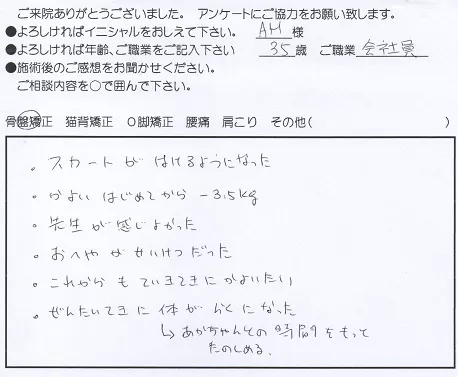 ご来院ありがとうございました。 アンケートにご協力をお願い致します。
●よろしければイニシャルをおしえて下さい。 AH 様
●よろしければ年齢、ご職業をご記入下さい 35歳 ご職業 会社員
●施術後のご感想をお聞かせください。
ご相談内容を○で囲んで下さい。
骨盤矯正 猫背矯正 O脚矯正 腰痛 肩こり その他( )
・スカートがはけるようになった
・かよいはじめてから -3.5kg
・先生が感じよかった
・おへやがせいけつだった
・これからもていきてきにかよいたい
・ぜんたいてきに体がらくになった
↳ あかちゃんとの時間をもって
たのしめる。